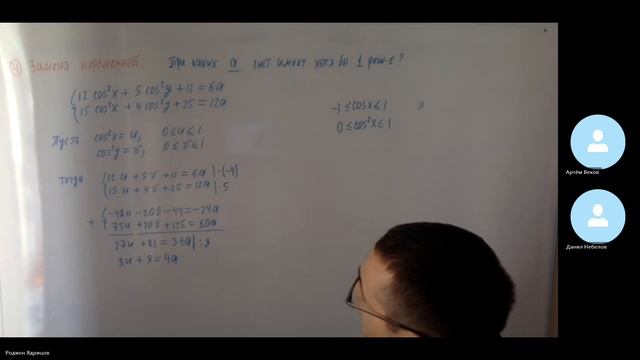 ④ Замена переменной: При каких a сист. имеет хотя бы 1 реш-е?
{12 cos²x + 5 cos²y + 11 = 6a
15 cos²x + 4 cos²y + 25 = 12a
-1 ≤ cosx ≤ 1
0 ≤ cos²x ≤ 1
Пусть cos²x = u, 0 ≤ u ≤ 1
cos²y = v, 0 ≤ v ≤ 1
Тогда {12u + 5v + 11 = 6a | ·(-4)
15u + 4v + 25 = 12a | ·5
+ {-48u - 20v - 44 = -24a
75u + 20v + 125 = 60a
27u + 81 = 36a | :9
3u + 9 = 4a
Артём Веков
Данил Небелов
Родион Ядрицов